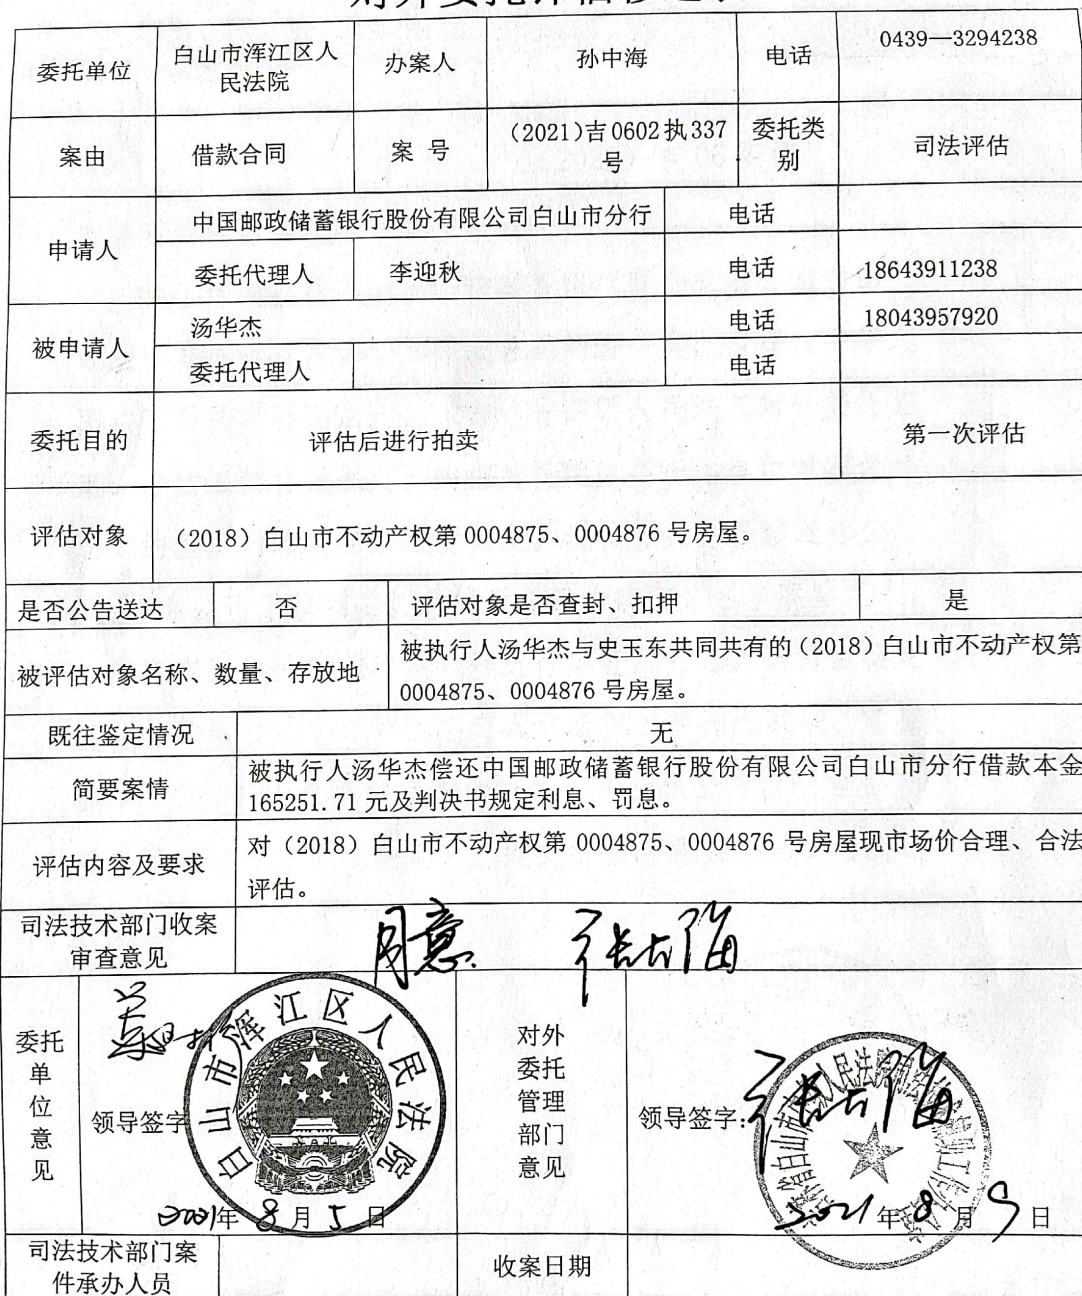 委托单位
白山市浑江区人
民法院
办案人
孙中海
电话
0439—3294238
案由
借款合同
案 号
（2021）吉0602执337
号
委托类
别
司法评估
申请人
中国邮政储蓄银行股份有限公司白山市分行
电话
委托代理人
李迎秋
电话
18643911238
被申请人
汤华杰
电话
18043957920
委托代理人
电话
委托目的
评估后进行拍卖
第一次评估
评估对象
（2018）白山市不动产权第 0004875、0004876 号房屋。
是否公告送达
否
评估对象是否查封、扣押
是
被评估对象名称、数量、存放地
被执行人汤华杰与史玉东共同共有的（2018）白山市不动产权第
0004875、0004876 号房屋。
既往鉴定情况
无
简要案情
被执行人汤华杰偿还中国邮政储蓄银行股份有限公司白山市分行借款本金
165251.71 元及判决书规定利息、罚息。
评估内容及要求
对（2018）白山市不动产权第 0004875、0004876 号房屋现市场价合理、合法
评估。
司法技术部门收案
审查意见
同意
委托
单
位
意
见
领导签字
白山市浑江区人民法院
2021年 8 月 5 日
对外
委托
管理
部门
意见
领导签字:
2021 年 8 月 9 日
司法技术部门案
件承办人员
收案日期